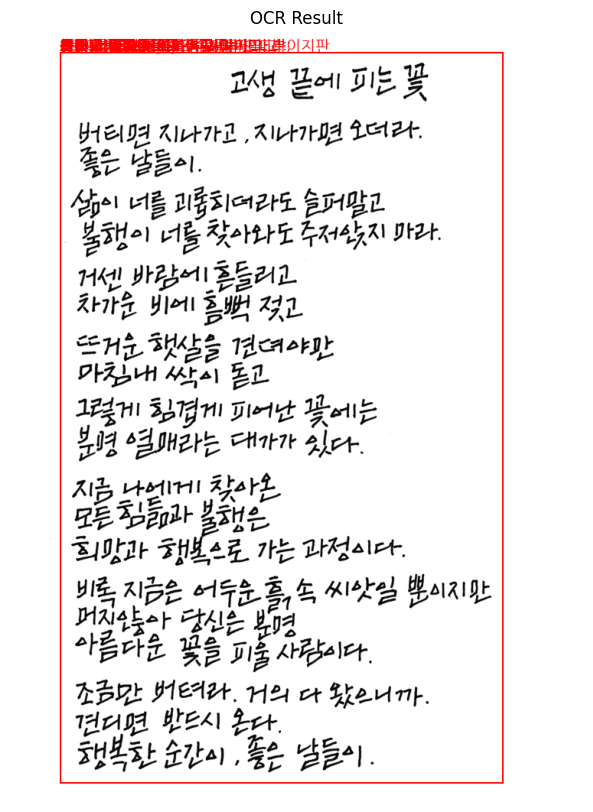 OCR Result
이지판
고생 끝에 피는 꽃
버티면 지나가고, 지나가면 오더라.
좋은 날들이.
삶이 너를 괴롭히더라도 슬퍼말고
불행이 너를 찾아와도 주저앉지 마라.
거센 바람에 흔들리고
차가운 비에 흠뻑 젖고
뜨거운 햇살을 견뎌야만
마침내 싹이 돋고
그렇게 힘겹게 피어난 꽃에는
분명 열매라는 대가가 있다.
지금 나에게 찾아온
모든 힘듦과 불행은
희망과 행복으로 가는 과정이다.
비록 지금은 어두운 흙 속 씨앗일 뿐이지만
머지않아 당신은 분명
아름다운 꽃을 피울 사람이다.
조금만 버텨라. 거의 다 왔으니까.
견디면 반드시 온다.
행복한 순간이, 좋은 날들이.